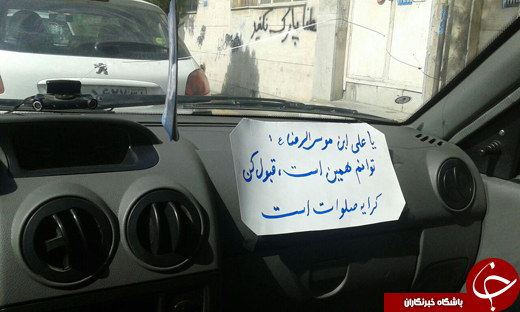 لطفا پارک نکنید
یا علی ابن موسی الرضا ع :
توانم همین است، قبول کن
کرایه صلوات است
باشگاه خبرنگاران